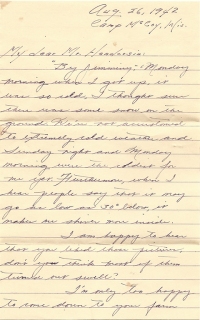 Aug. 26, 1942
Camp McCoy, Wis.
My Dear Mr.
"Beg pemining"; Monday
morning when I got up, it
was so cold, I thought sure
there was some snow on the
ground. I'm not accustomed
to extremely cold weather and
Sunday night and Monday
morning were the coldest for
me yet. Furthermore, when I
hear people say that it may
go as low as 30° below, it
makes me shiver more inside.
I am happy to hear
that you liked those pictures,
don't you think most of them
turned out swell?
I'm only too happy
to come down to your farm